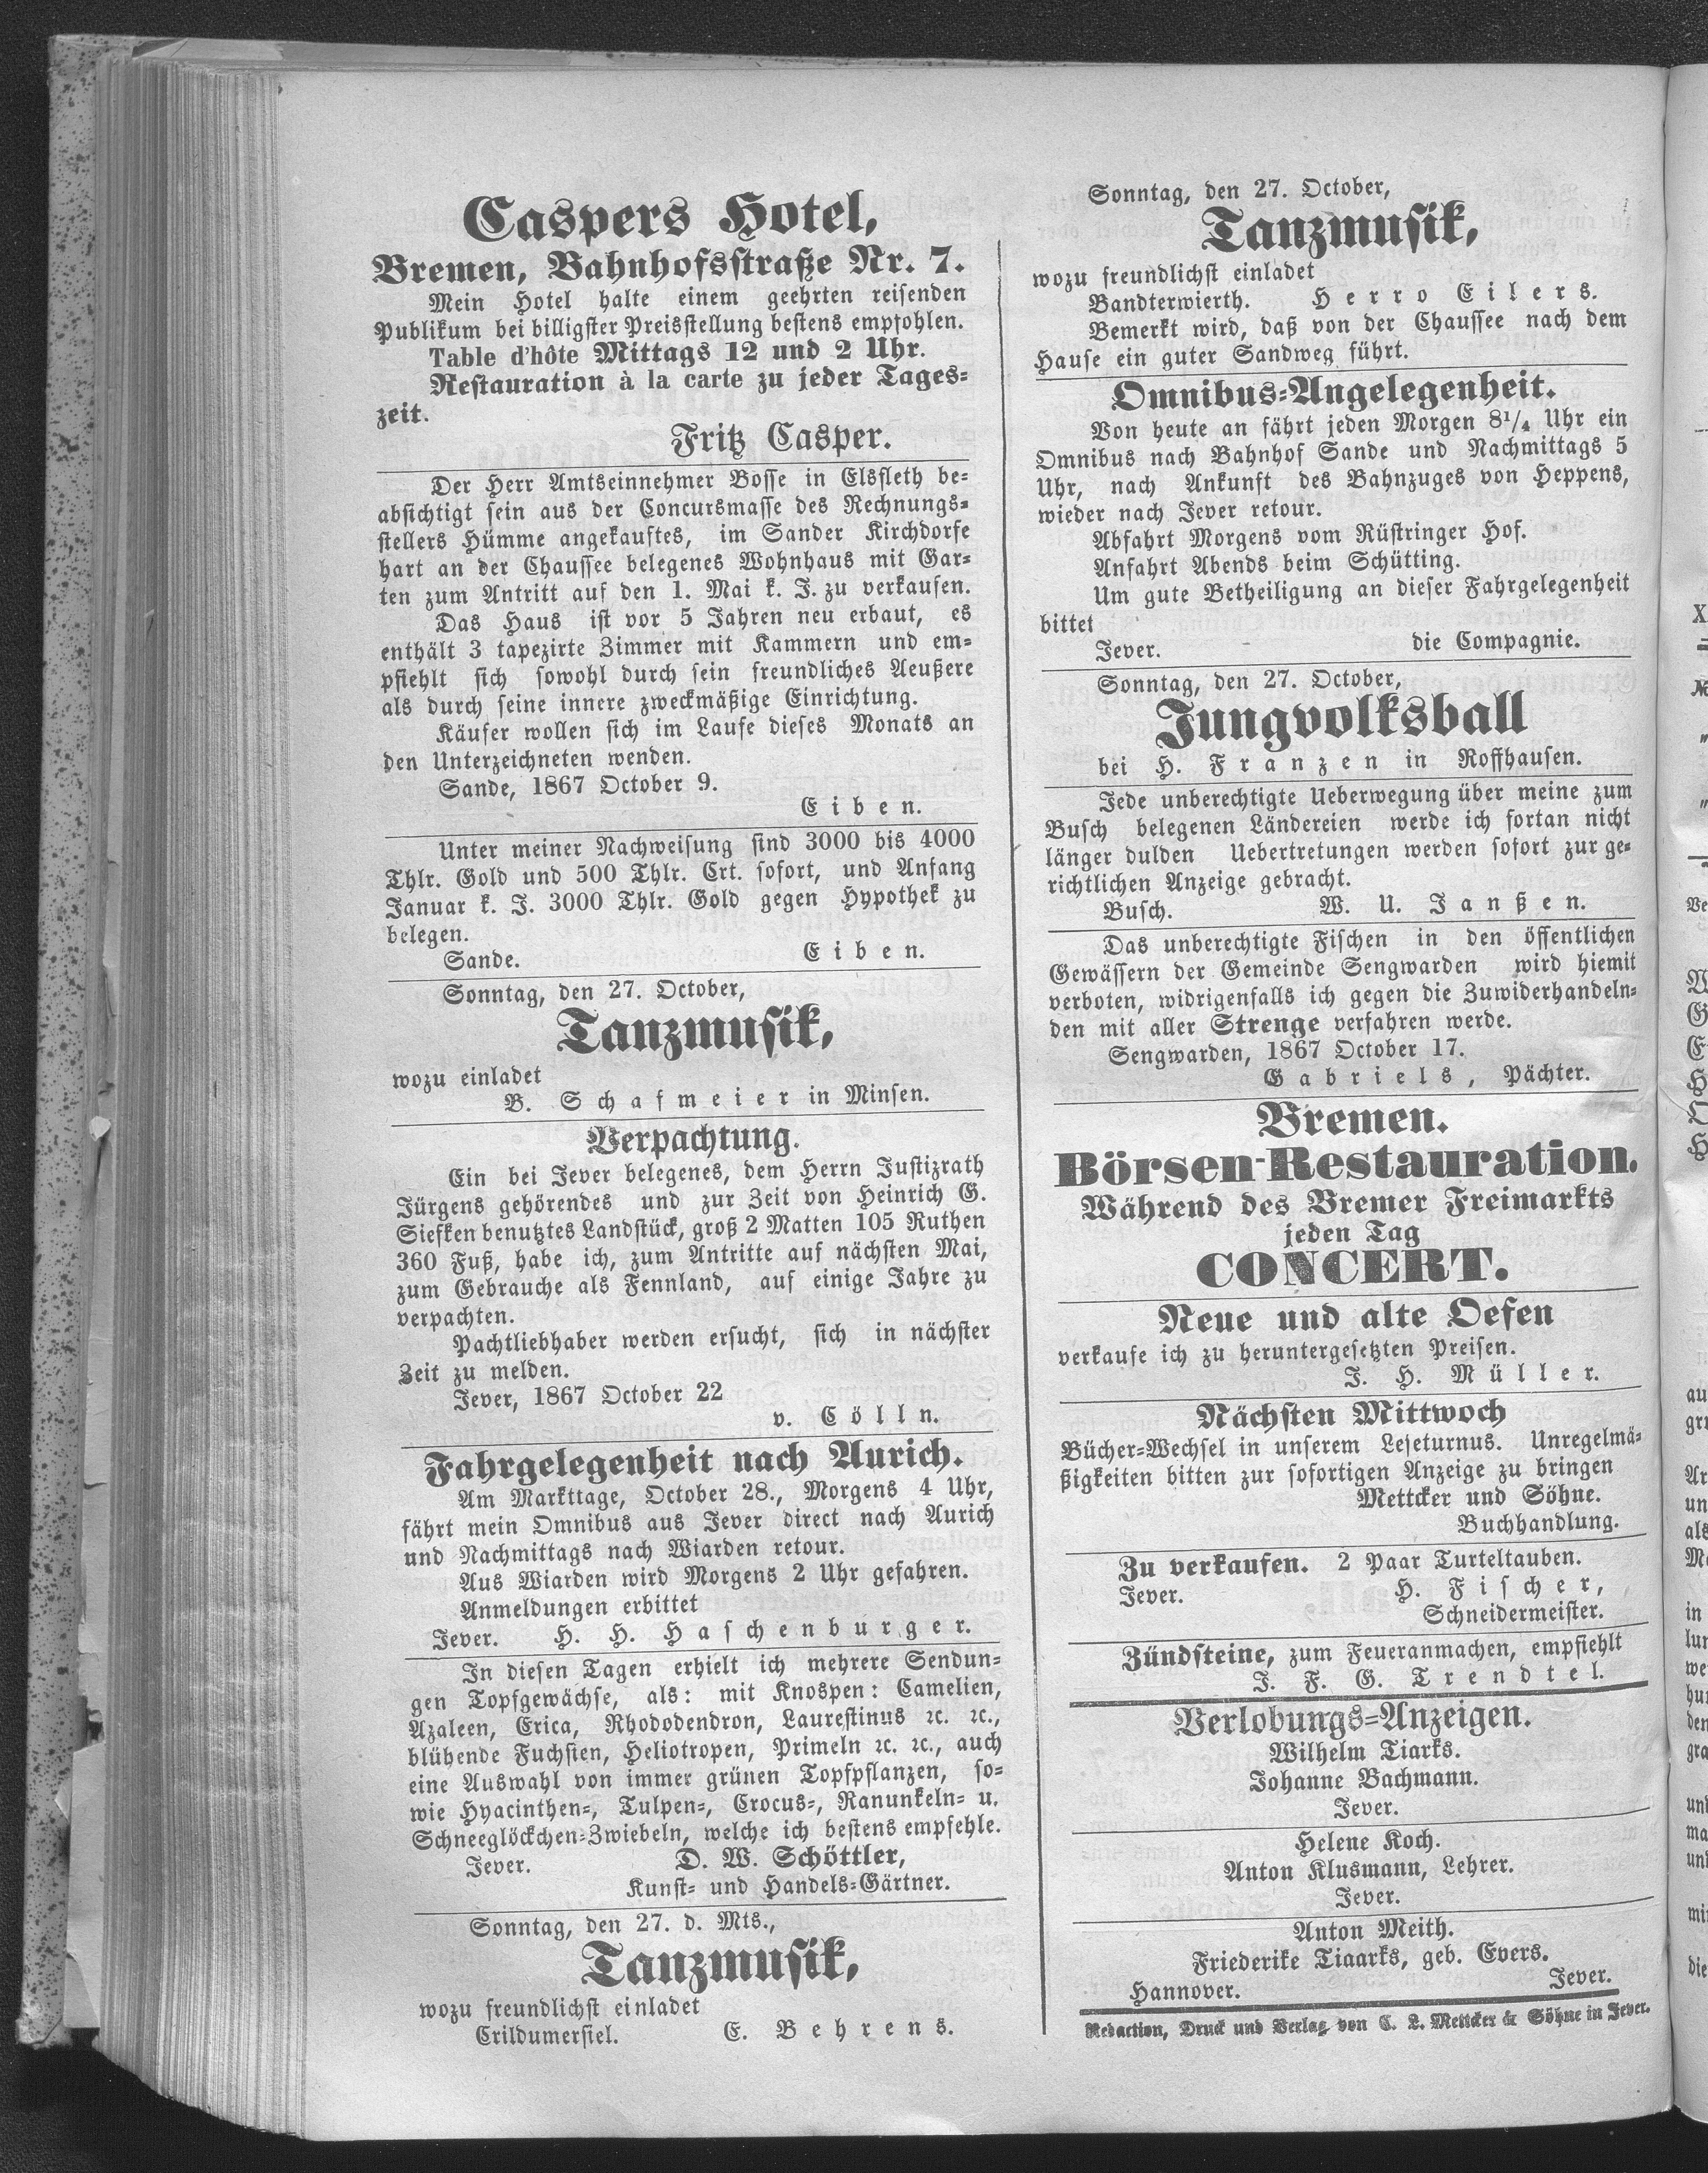 Caspers Hotel,
Bremen, Bahnhofsstraße Nr. 7.
Mein Hotel halte einem geehrten reisenden
Publikum bei billigster Preisstellung bestens empfohlen.
Table d'hôte Mittags 12 und 2 Uhr.
Restauration à la carte zu jeder Tages-
zeit.
Fritz Casper.
Der Herr Amtseinnehmer Bosse in Elsfleth be-
absichtigt sein aus der Concursmasse des Rechnungs-
stellers Hümme angekauftes, im Sander Kirchdorfe
hart an der Chaussee belegenes Wohnhaus mit Gar-
ten zum Antritt auf den 1. Mai k. J. zu verkaufen.
Das Haus ist vor 5 Jahren neu erbaut, es
enthält 3 tapezirte Zimmer mit Kammern und em-
pfiehlt sich sowohl durch sein freundliches Aeußere
als durch seine innere zweckmäßige Einrichtung.
Käufer wollen sich im Laufe dieses Monats an
den Unterzeichneten wenden.
Sande, 1867 October 9.
Eiben.
Unter meiner Nachweisung sind 3000 bis 4000
Thlr. Gold und 500 Thlr. Crt. sofort, und Anfang
Januar k. J. 3000 Thlr. Gold gegen Hypothek zu
belegen.
Sande. Eiben.
Sonntag, den 27. October,
Tanzmusik,
wozu einladet
B. Schafmeier in Minsen.
Verpachtung.
Ein bei Jever belegenes, dem Herrn Justizrath
Jürgens gehörendes und zur Zeit von Heinrich G.
Siefken benutztes Landstück, groß 2 Matten 105 Ruthen
360 Fuß, habe ich, zum Antritte auf nächsten Mai,
zum Gebrauche als Fennland, auf einige Jahre zu
verpachten.
Pachtliebhaber werden ersucht, sich in nächster
Zeit zu melden.
Jever, 1867 October 22
v. Cölln.
Fahrgelegenheit nach Aurich.
Am Markttage, October 28., Morgens 4 Uhr,
fährt mein Omnibus aus Jever direct nach Aurich
und Nachmittags nach Wiarden retour.
Aus Wiarden wird Morgens 2 Uhr gefahren.
Anmeldungen erbittet
Jever. H. H. Haschenburger.
In diesen Tagen erhielt ich mehrere Sendun-
gen Topfgewächse, als: mit Knospen: Camelien,
Azaleen, Erica, Rhododendron, Laurestinus ꝛc. ꝛc.,
blühende Fuchsien, Heliotropen, Primeln ꝛc. ꝛc., auch
eine Auswahl von immer grünen Topfpflanzen, so-
wie Hyacinthen-, Tulpen-, Crocus-, Ranunkeln- u.
Schneeglöckchen-Zwiebeln, welche ich bestens empfehle.
Jever. D. W. Schöttler,
Kunst- und Handels-Gärtner.
Sonntag, den 27. d. Mts.,
Tanzmusik,
wozu freundlichst einladet
Crildumersiel. E. Behrens.
Sonntag, den 27. October,
Tanzmusik,
wozu freundlichst einladet
Bandterwierth. Herro Eilers.
Bemerkt wird, daß von der Chaussee nach dem
Hause ein guter Sandweg führt.
Omnibus-Angelegenheit.
Von heute an fährt jeden Morgen 8¼ Uhr ein
Omnibus nach Bahnhof Sande und Nachmittags 5
Uhr, nach Ankunft des Bahnzuges von Heppens,
wieder nach Jever retour.
Abfahrt Morgens vom Rüstringer Hof.
Anfahrt Abends beim Schütting.
Um gute Betheiligung an dieser Fahrgelegenheit
bittet
Jever. die Compagnie.
Sonntag, den 27. October,
Jungvolksball
bei H. Franzen in Roffhausen.
Jede unberechtigte Ueberwegung über meine zum
Busch belegenen Ländereien werde ich fortan nicht
länger dulden Uebertretungen werden sofort zur ge-
richtlichen Anzeige gebracht.
Busch. W. U. Janßen.
Das unberechtigte Fischen in den öffentlichen
Gewässern der Gemeinde Sengwarden wird hiemit
verboten, widrigenfalls ich gegen die Zuwiderhandeln-
den mit aller Strenge verfahren werde.
Sengwarden, 1867 October 17.
Gabriels, Pächter.
Bremen.
Börsen-Restauration.
Während des Bremer Freimarkts
jeden Tag
CONCERT.
Neue und alte Oefen
verkaufe ich zu heruntergesetzten Preisen.
J. H. Müller.
Nächsten Mittwoch
Bücher-Wechsel in unserem Leseturnus. Unregelmä-
ßigkeiten bitten zur sofortigen Anzeige zu bringen
Mettcker und Söhne.
Buchhandlung.
Zu verkaufen. 2 Paar Turteltauben.
Jever. H. Fischer,
Schneidermeister.
Zündsteine, zum Feueranmachen, empfiehlt
J. F. G. Trendtel.
Verlobungs-Anzeigen.
Wilhelm Tiarks.
Johanne Bachmann.
Jever.
Helene Koch.
Anton Klusmann, Lehrer.
Jever.
Anton Meith.
Friederike Tiaarks, geb. Evers.
Hannover. Jever.
Redaction, Druck und Verlag von C. L. Mettcker & Söhne in Jever.